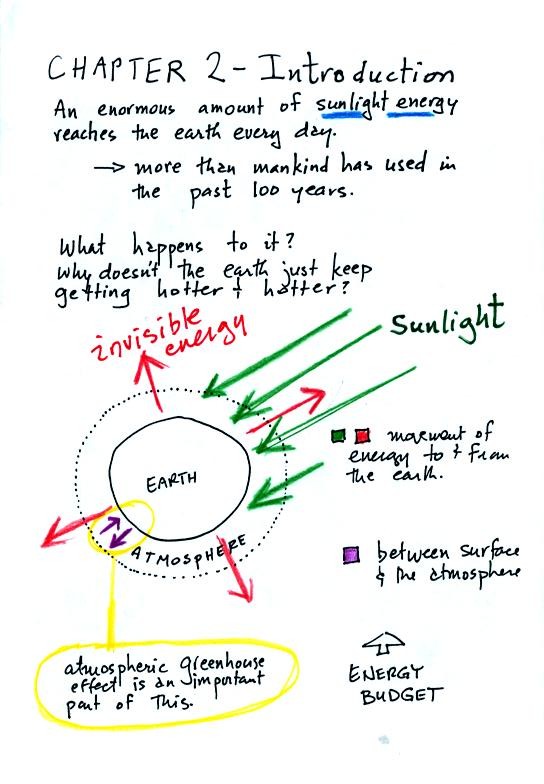 CHAPTER 2 - Introduction
An enormous amount of sunlight energy
reaches the earth every day.
→ more than mankind has used in
the past 100 years.
What happens to it?
Why doesn't the earth just keep
getting hotter & hotter?
invisible
energy
Sunlight
EARTH
ATMOSPHERE
movement of
energy to & from
the earth.
between surface
& the atmosphere
atmospheric greenhouse
effect is an important
part of this.
ENERGY
BUDGET